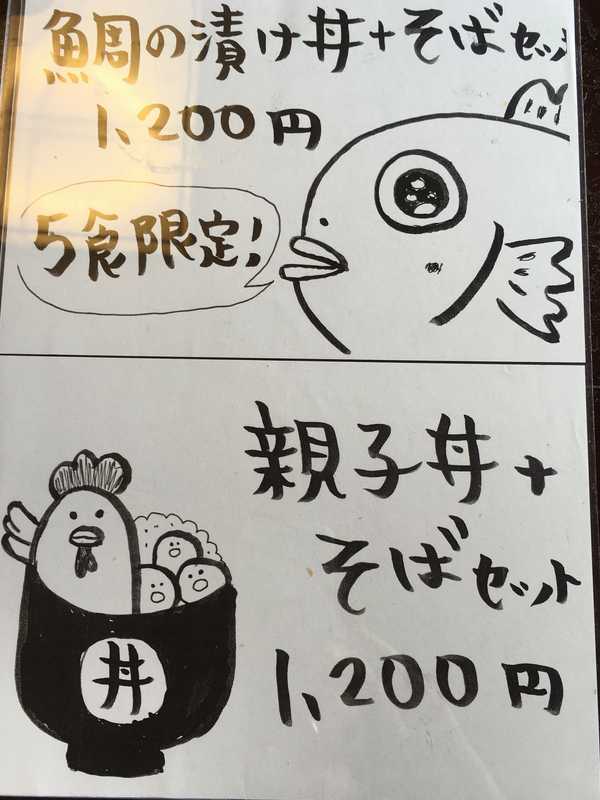 鯛の漬け丼+そばセット
1,200円
5食限定!
親子丼+
そばセット
1,200円
丼